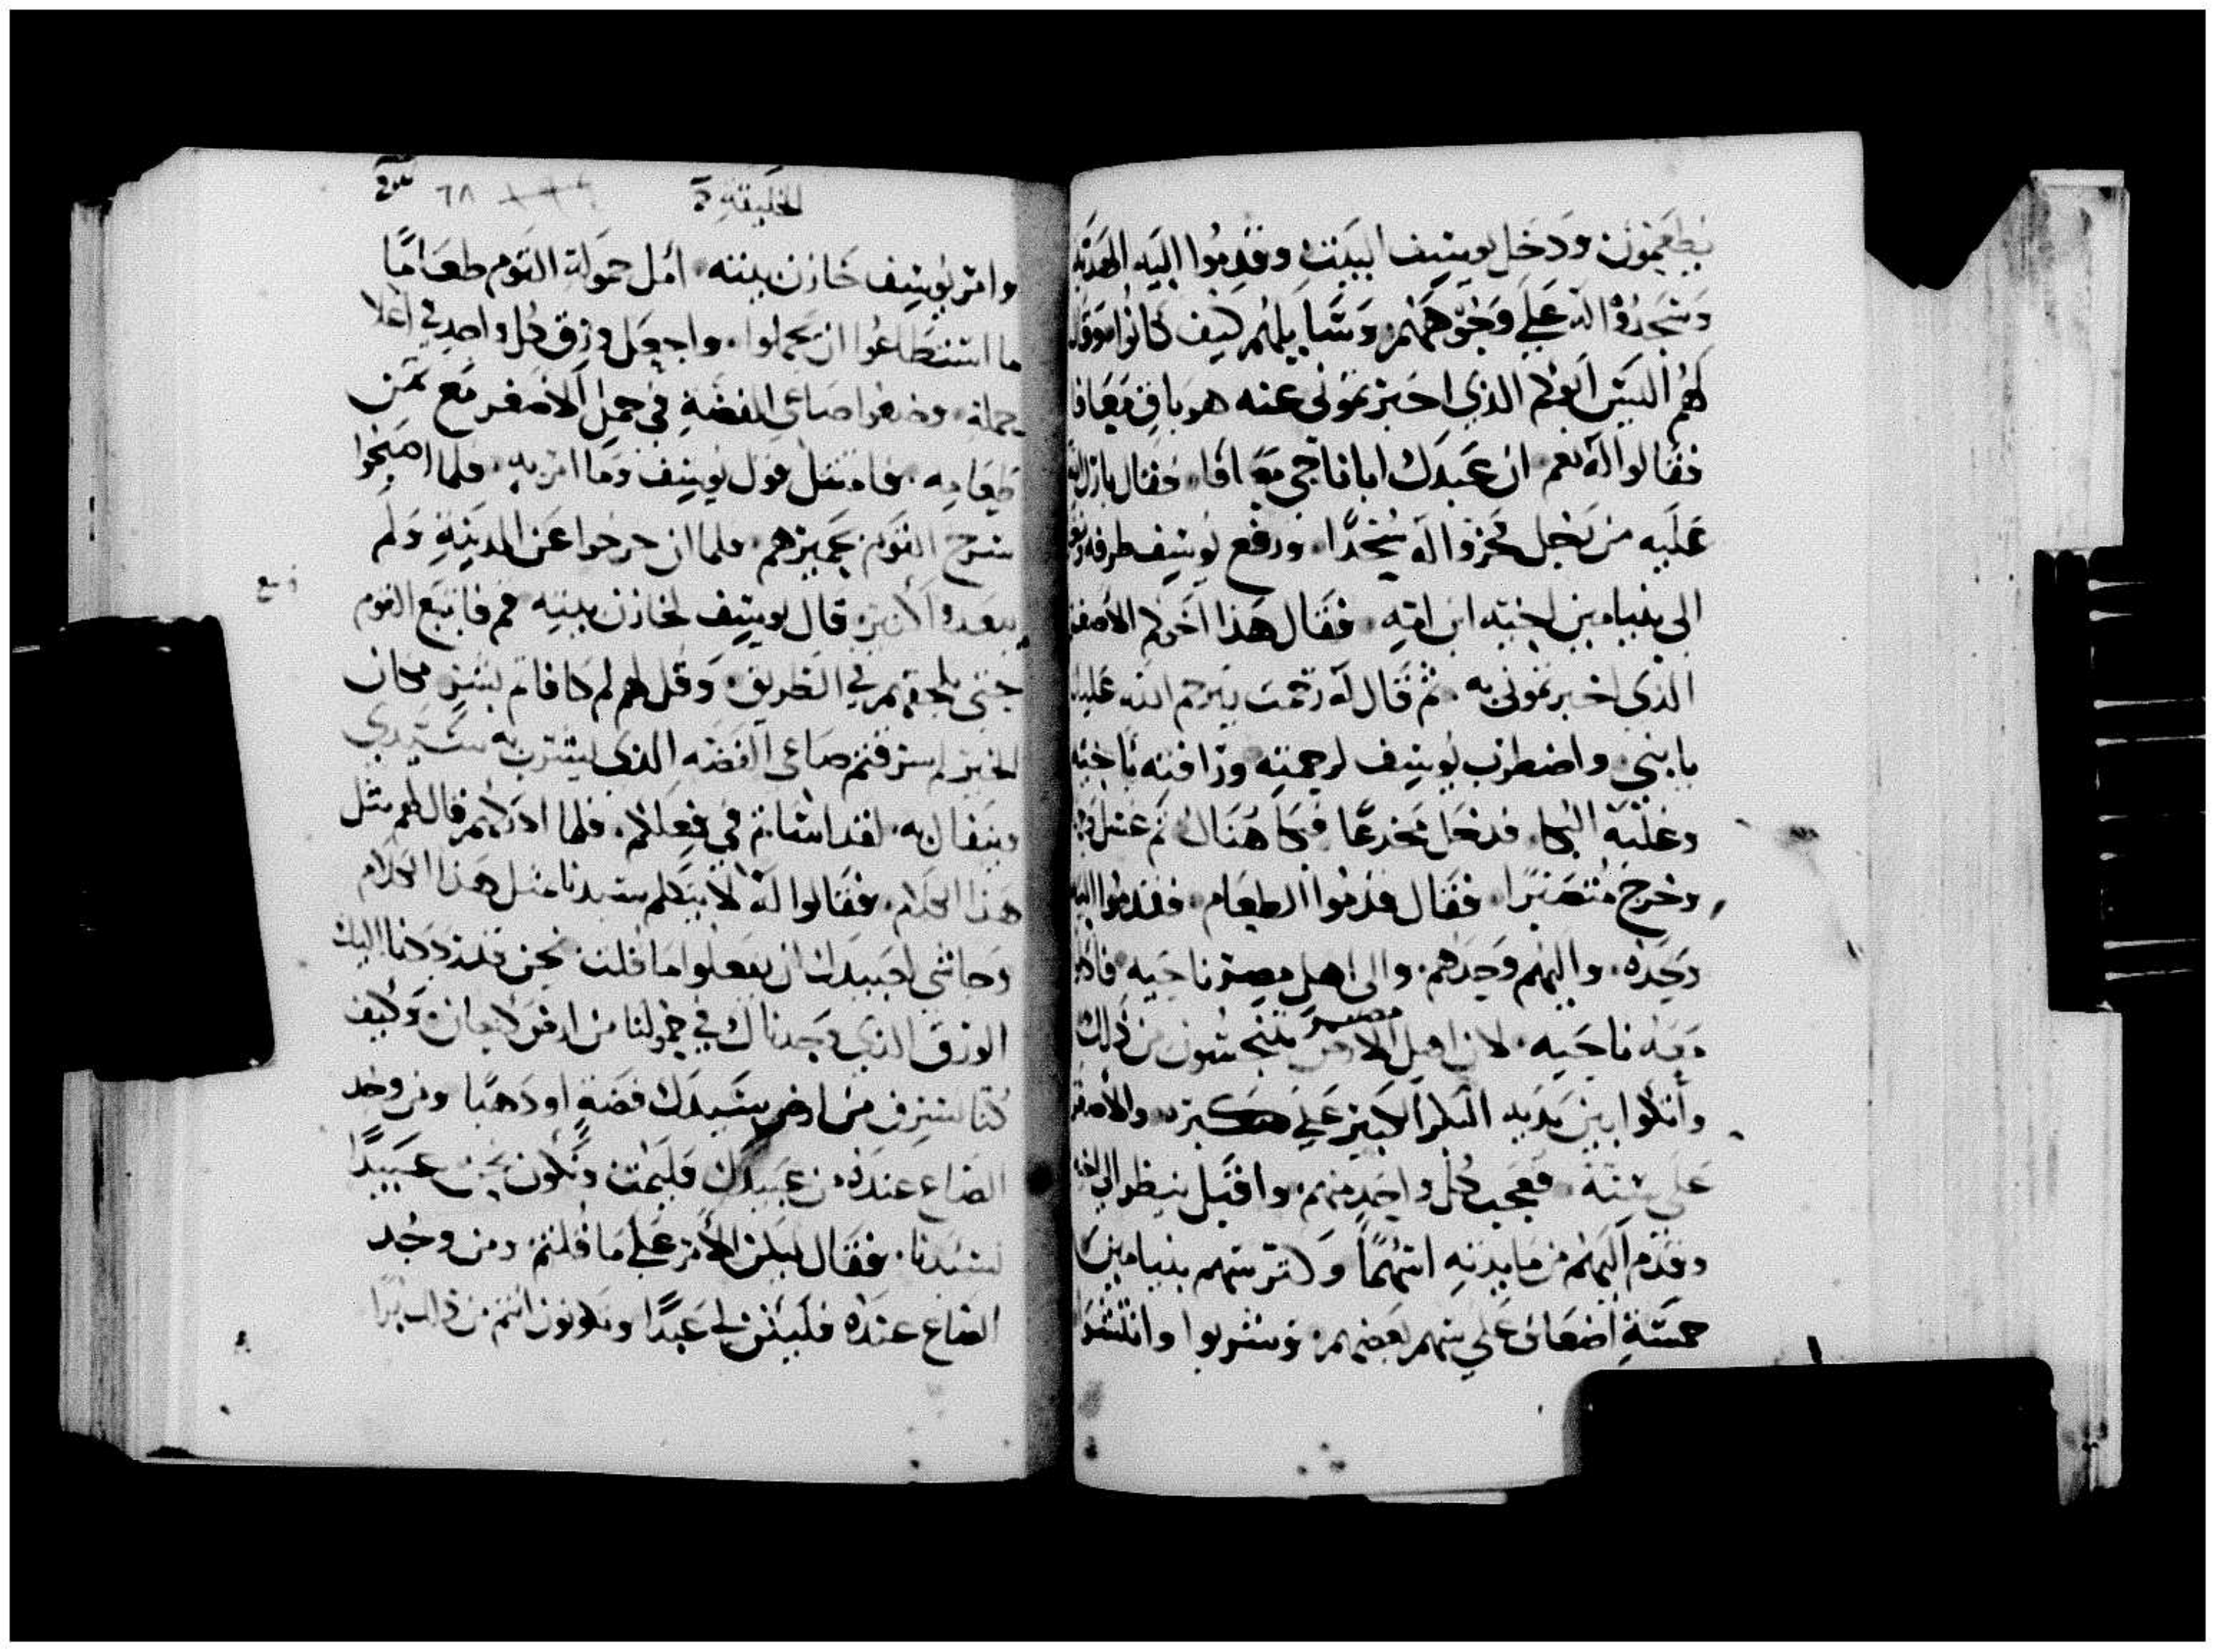 يطعمون ودخل يوسف البيت وقدموا اليه الهديه
وسجدوا له علي وجوههم وسايلهم كيف كانوا وقال
لهم اليس ابوكم الذي اخبرتموني عنه هو باق معافا
فقالوا له نعم ان عبدك ابانا حي معافا فقال بارك الله
عليه من رجل فخروا له سجدا ورفع يوسف طرفه
الى بنيامين اخيه ابن امه فقال هذا اخوكم الاصغر
الذي اخبرتموني به ثم قال له رحمت يرحم الله عليك
يا بني واضطرب يوسف لرحمته ورافته باخيه
وغلبه البكا فدخل مخدعا فبكا هناك ثم غسل
وخرج متصبرا فقال قدموا الطعام فقدموا اليه
وحده واليهم وحدهم والى اهل مصر ناحيه
معه ناحيه لان اهل الارض مصر يتنجسون من ذلك
واتكوا بين يديه البكر الكبير علي كبره والاصغر
على سنه فعجب كل واحد منهم واقبل ينظر الى اخيه
وقدم اليهم من مايدته اسهما وكثر سهم بنيامين
خمسة اضعاف علي سهم بعضهم وشربوا وانتشوا
الخليقة
٦٨
وامر يوسف خازن بيته امل حمولة القوم طعاما
ما استطاعوا ان يحملوا واجعل ورق كل واحد في اعلا
حمله وضعوا صاعي الفضة في حمل الاصغر مع ثمن
طعامه فامتثل قول يوسف وما امر به فلما اصبحوا
سرح القوم بحميرهم فلما ان خرجوا عن المدينة ولم
يبعدوا كثير قال يوسف لخازن بيته قم فاتبع القوم
حتى تلحقهم في الطريق وقل لهم لم كافاتم بشر مكان
الخير لم سرقتم صاعي الفضه الذي يشرب به سيدي
ويتفال به لقد اساتم في فعلكم فلما ادركهم قال لهم مثل
هذا الكلام فقالوا له لا يتكلم سيدنا مثل هذا الكلام
وحاشى لعبيدك ان يفعلوا ما قلت نحن قد رددنا اليك
الورق الذي وجدناك في حمولنا من ارض كنعان وكيف
كنا نسرق من ارض سيدك فضة او ذهبا ومن وجد
الصاع عنده من عبيدك فليمت ونكون نحن عبيدا
لسيدنا فقال ليكن الامر علي ما قلتم ومن وجد
الصاع عنده فليكن لي عبدا وتكونون انتم من ذلك برا